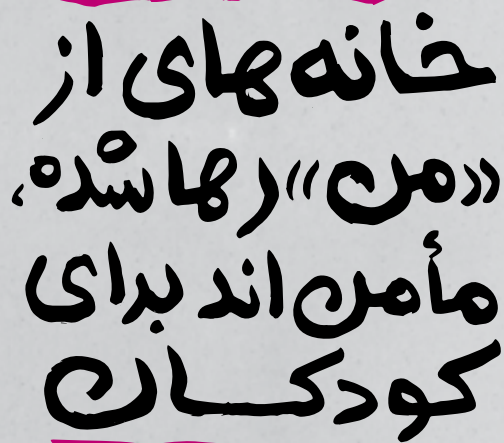 خانه های از
«من» رها شده،
مأمن اند برای
کودکان